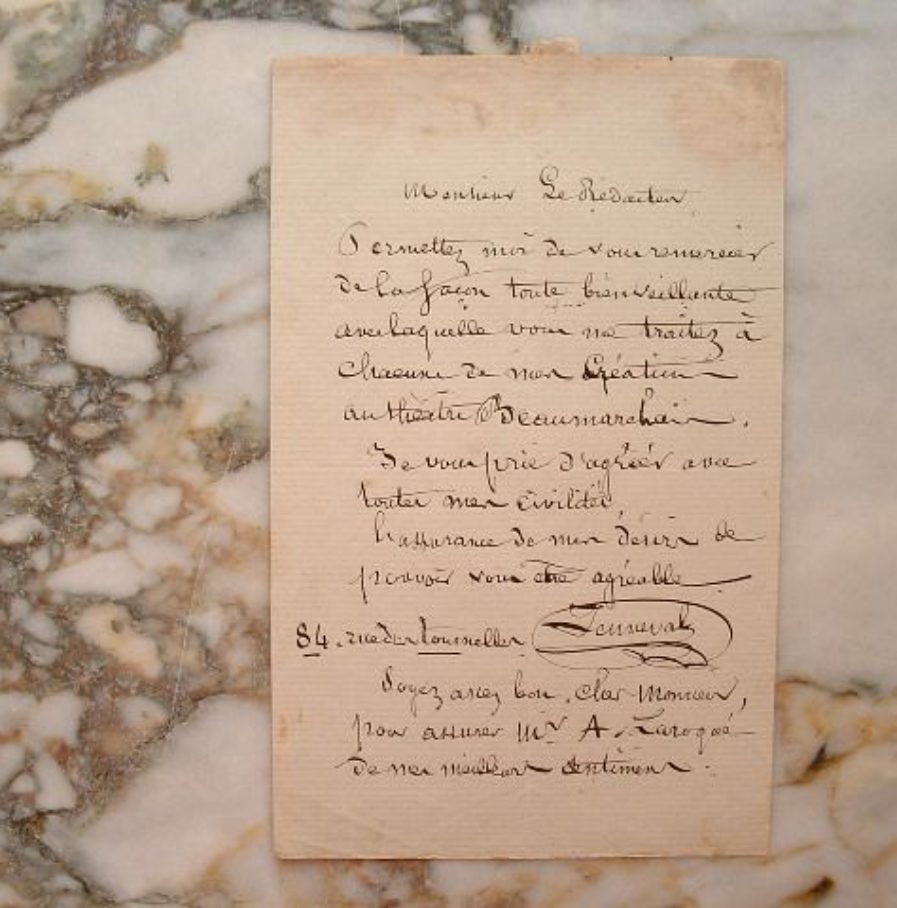 Monsieur Le Rédacteur
Permettez moi de vous remercier
de la façon toute bienveillante
avec laquelle vous me traitez à
chacune de mes Création
au théâtre Beaumarchais.
Je vous prie d'agréer avec
toutes mes civilités,
l'assurance de mon désir de
pouvoir vous être agréable
84. rue des tournelles Jenneval
Soyez assez bon, cher Monsieur,
pour assurer Mr A.
de mes meilleurs sentiments.